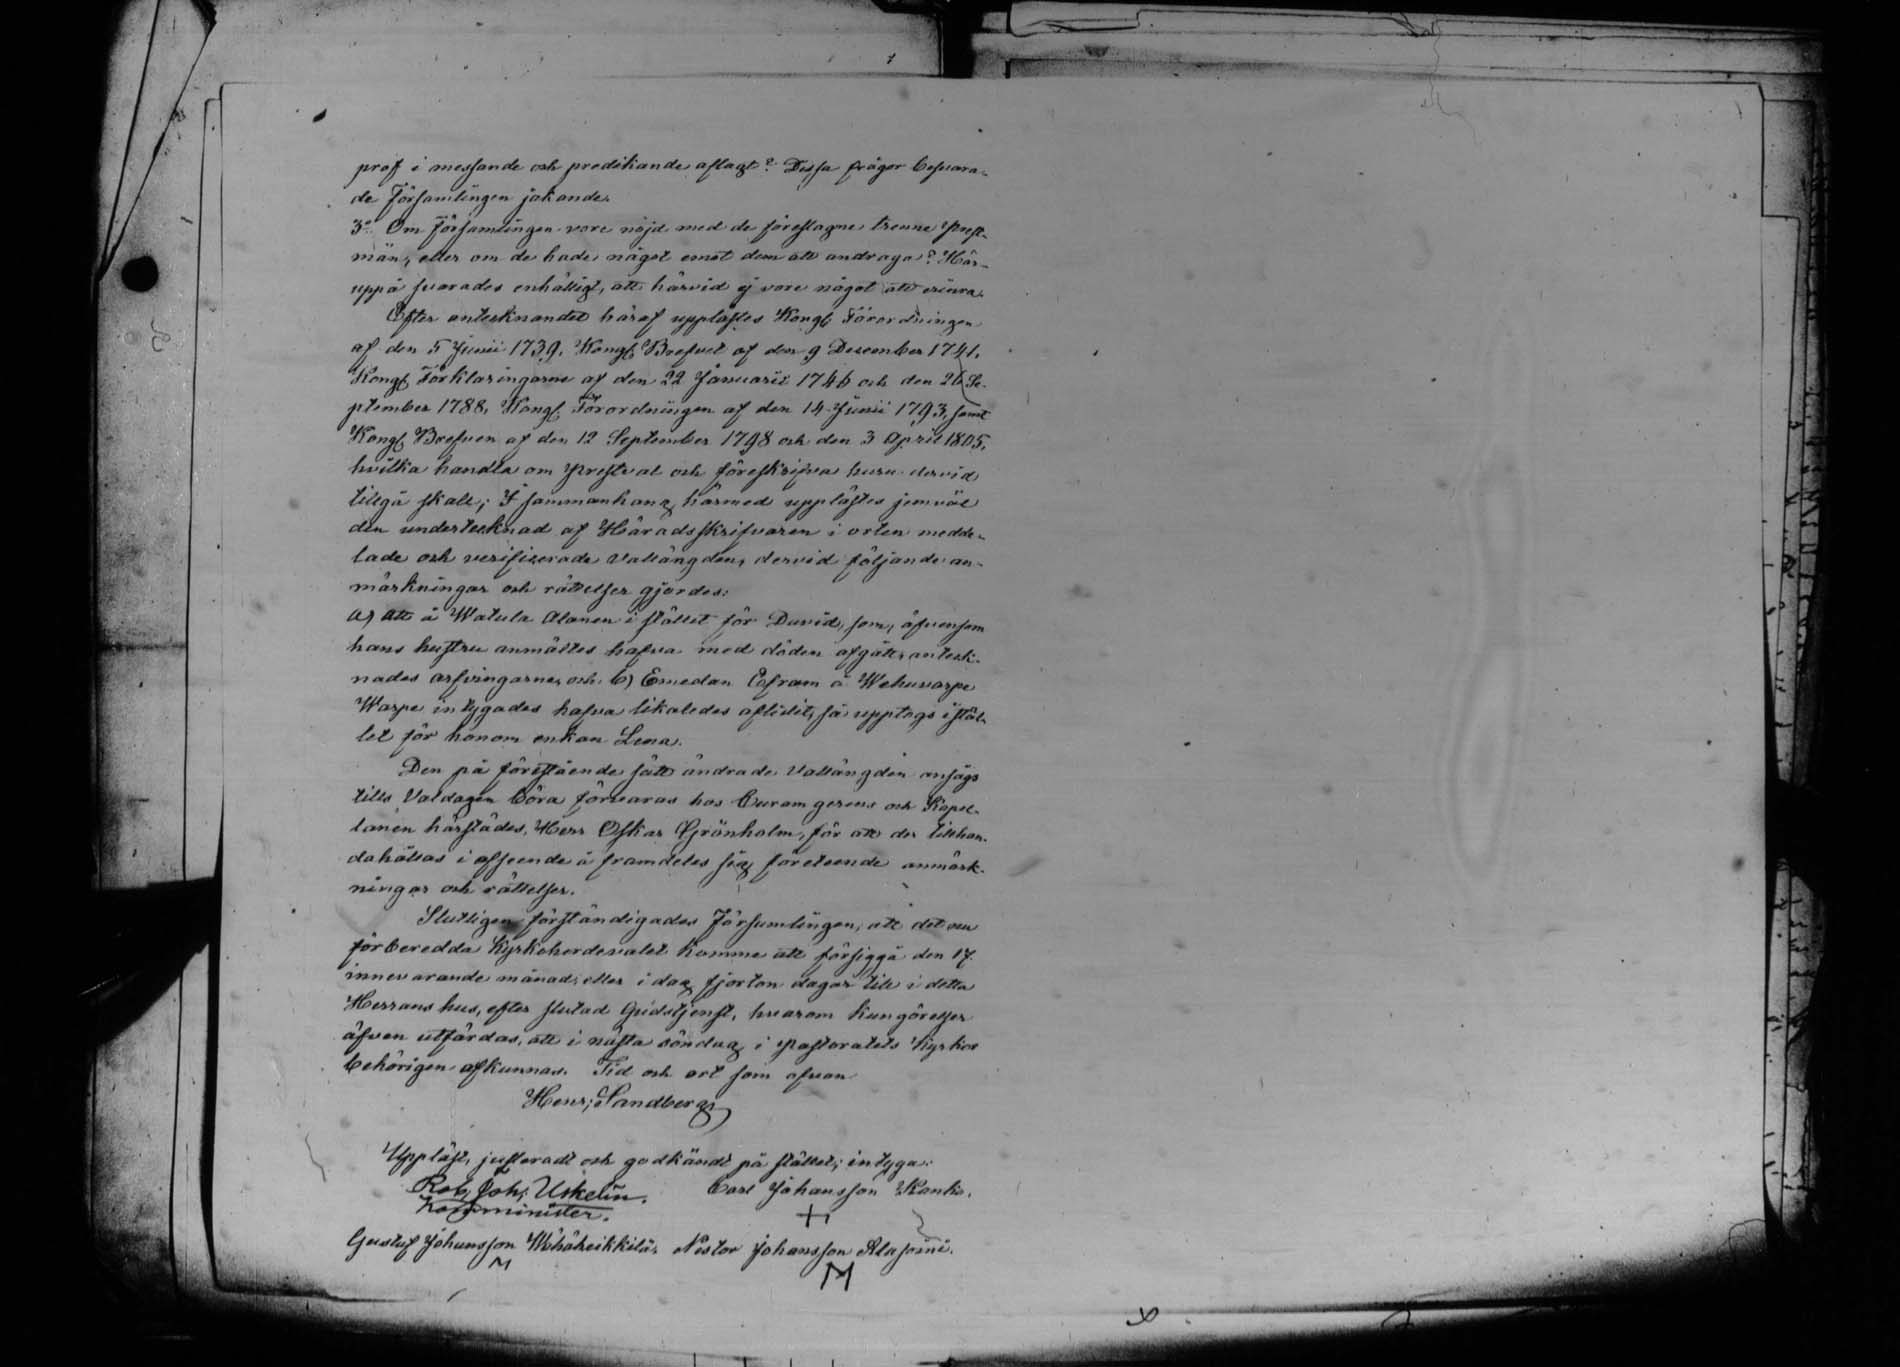 prof i messande och predikande aflagt? Dessa frågor besvara-
de Församlingen jakande.
3:o Om Församlingen vore nöjd med de föreslagne trenne Prest-
män, eller om de hade något emot dem att andraga? Här-
uppå svarades enhälligt, att härvid ej vore något att erinra.
Efter antecknandet häraf upplästes Kongl Förordningen
af den 5 Junii 1739, Kongl Brefvet af den 9 December 1741,
Kongl Förklaringarne af den 22 Januarii 1746 och den 26 Se-
ptember 1788, Kongl. Förordningen af den 14 Junii 1793, samt
Kongl Brefven af den 12 September 1798 och den 3 April 1805,
hvilka handla om Prestval och föreskrifva huru dervid
tillgå skall; I sammanhang härmed upplästes jemväl
den undertecknad af Häradsskrifvaren i orten medde-
lade och verificerade Vallängden, dervid följande an-
märkningar och rättelser gjordes:
a) att å Watula Alanen i stället för David, som, äfvensom
hans hustru anmältes hafva med döden afgått, anteck-
nades arfvingarne, och b) Emedan Efram å Wehuvarpe
Warpe intygades hafva likaledes aflidit, så upptogs i stäl-
let för honom enkan Lena.
Den på förestående sätt ändrade Vallängden ansågs
tills Valdagen böra förvaras hos Curam gerens och Kapel-
lanen härstädes, Herr Oskar Grönholm, för att der tillhan-
dahållas i afseende å framdeles sig företeende anmärk-
ningar och rättelser.
Slutligen förständigades Församlingen, att det nu
förberedda Kyrkoherdevalet komme att försiggå den 17
innevarande månad, eller i dag fjorton dagar till i detta
Herrans hus, efter slutad Gudstjenst, hvarom kungörelser
äfven utfärdas, att i nästa söndag i Pastoratets Kyrkor
behörigen afkunnas. Tid och ort som ofvan
Henr. Sandberg
Uppläst, justeradt och godkändt på stället; intyga:
Rob. Joh. Uskelin. Carl Johansson
Kommminister.
Gustaf Johansson Nestor Johansson Alasoini.